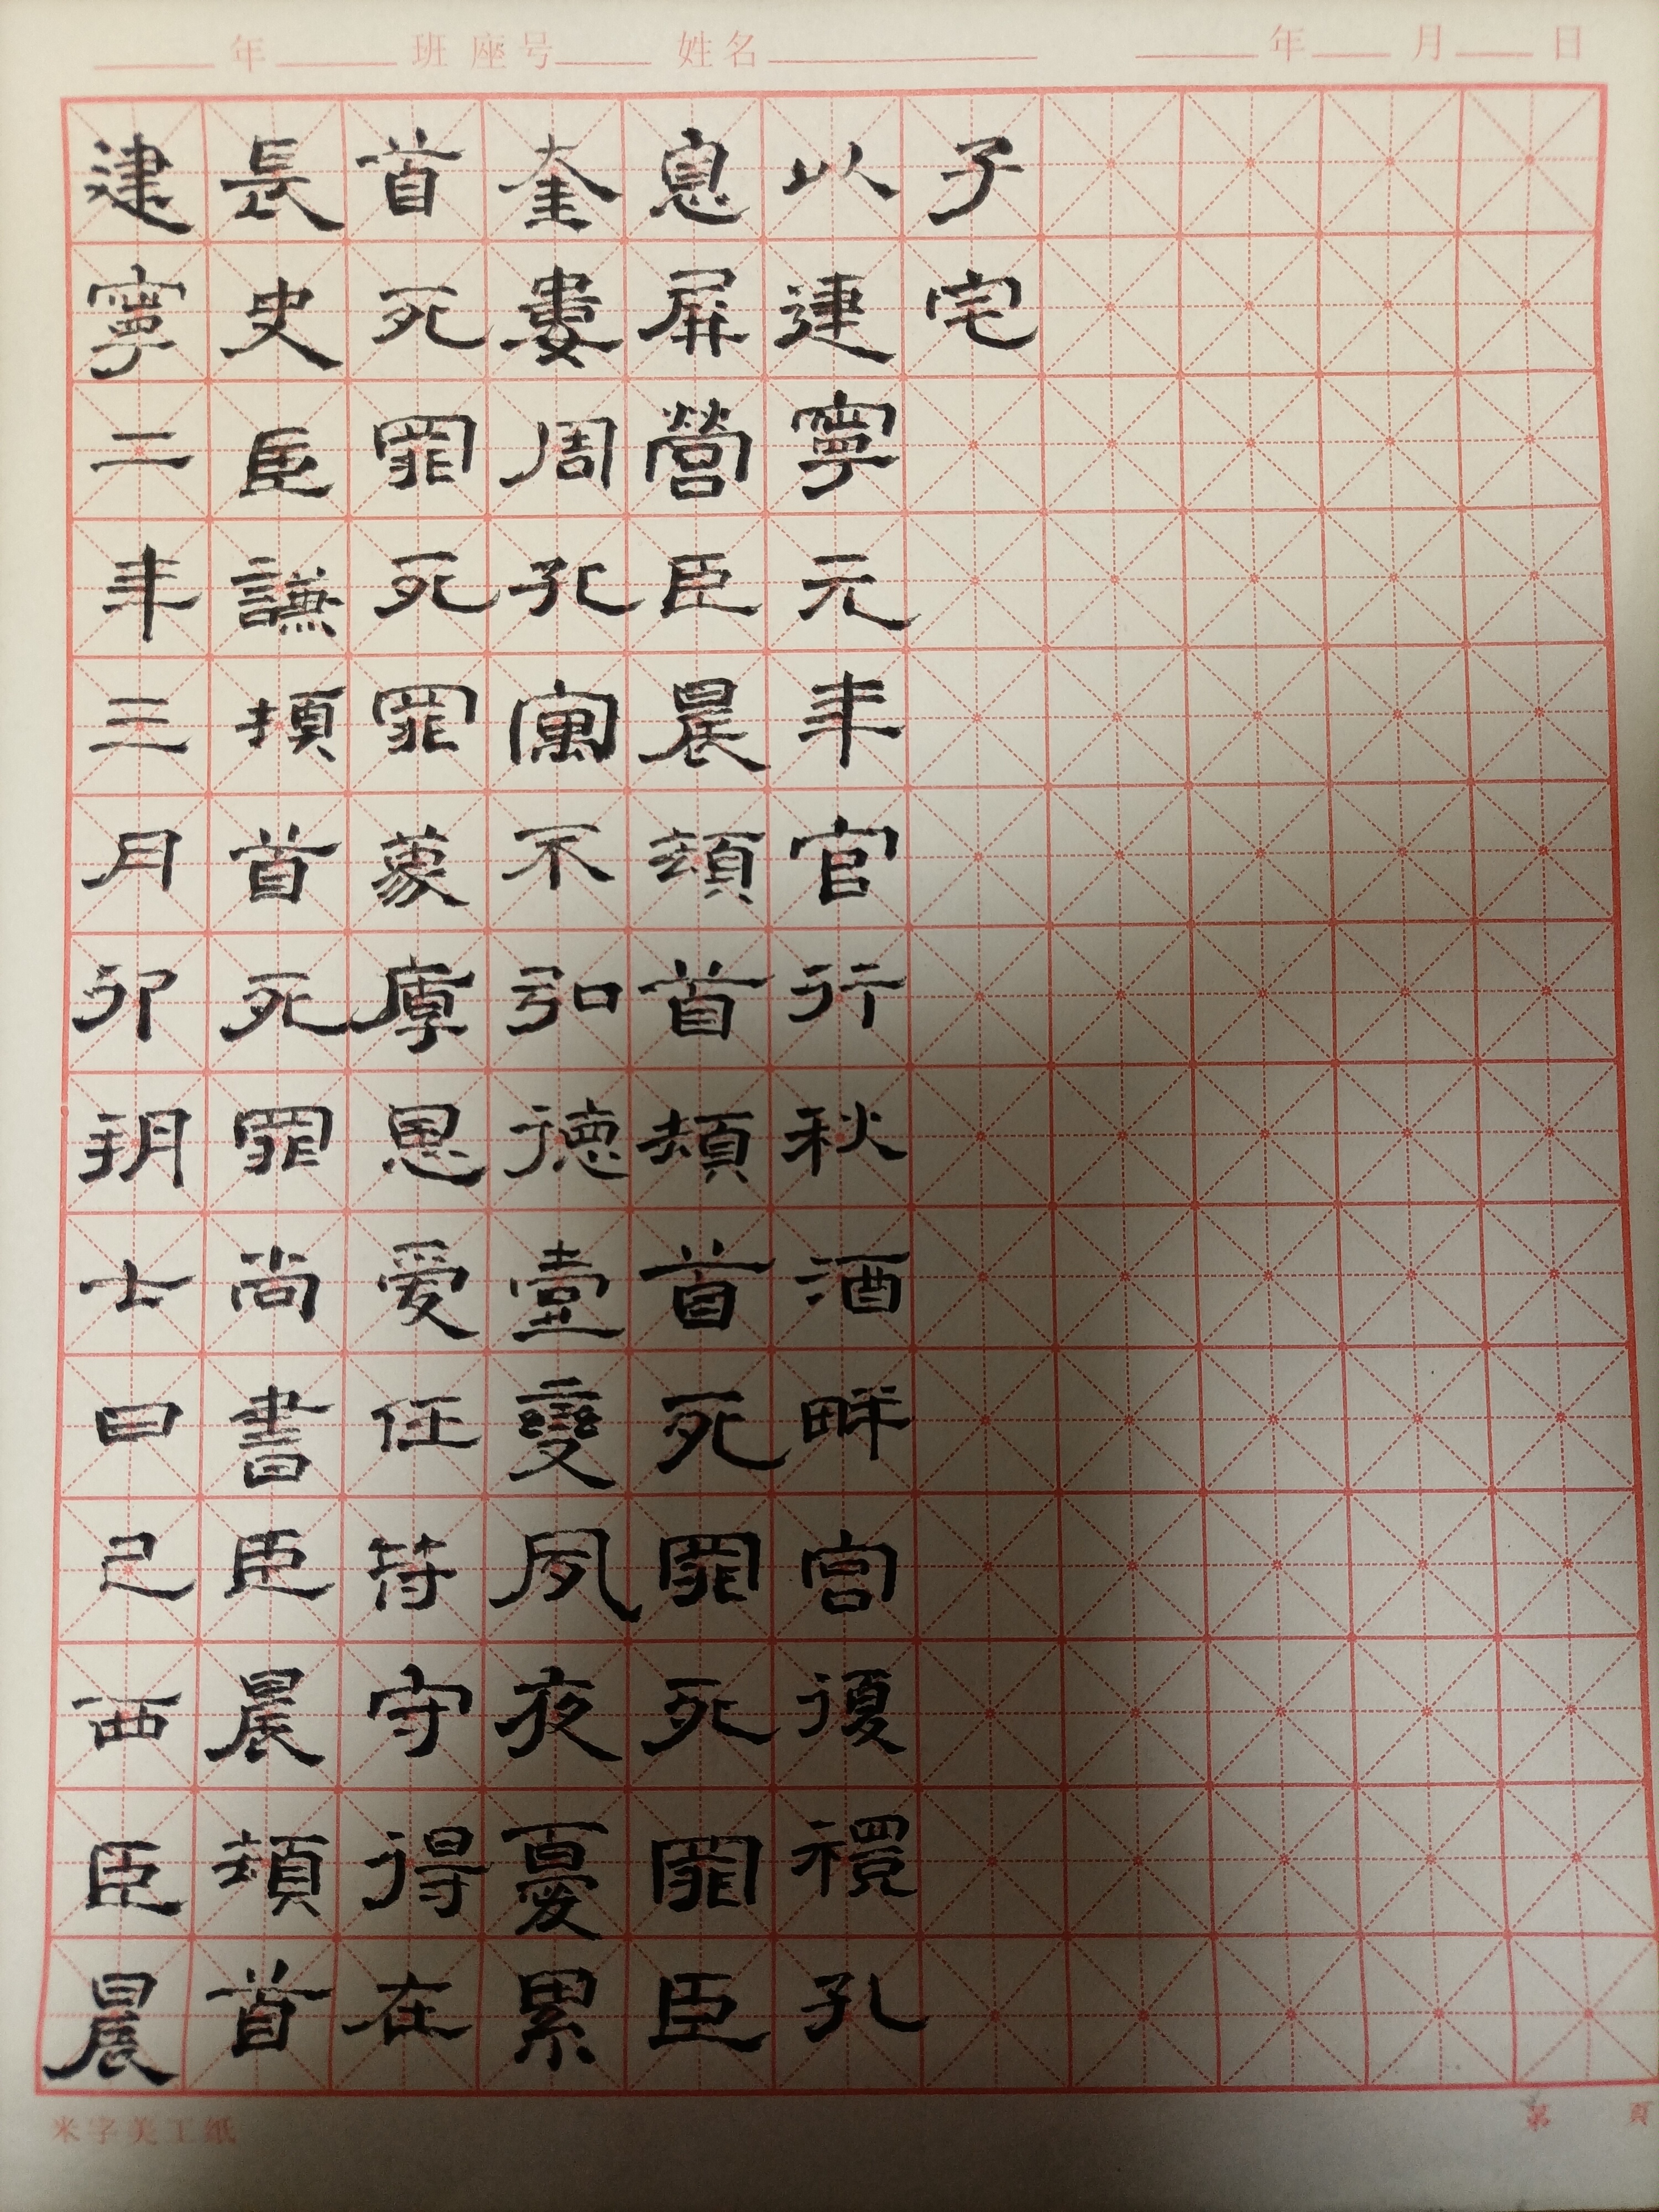 年 班 座号 姓名 年 月 日
建寧二年三月卯朔七日己酉臣晨
長史臣謙頓首死罪尚書臣晨頓首
首死罪死罪蒙厚恩受任符守得在
奎婁周孔寓不弘德臺變夙夜憂累
息屏營臣晨頓首頓首死罪死罪臣
以建寧元年官行秋酒畔宮復禮孔
子宅
米字美工纸 第 頁